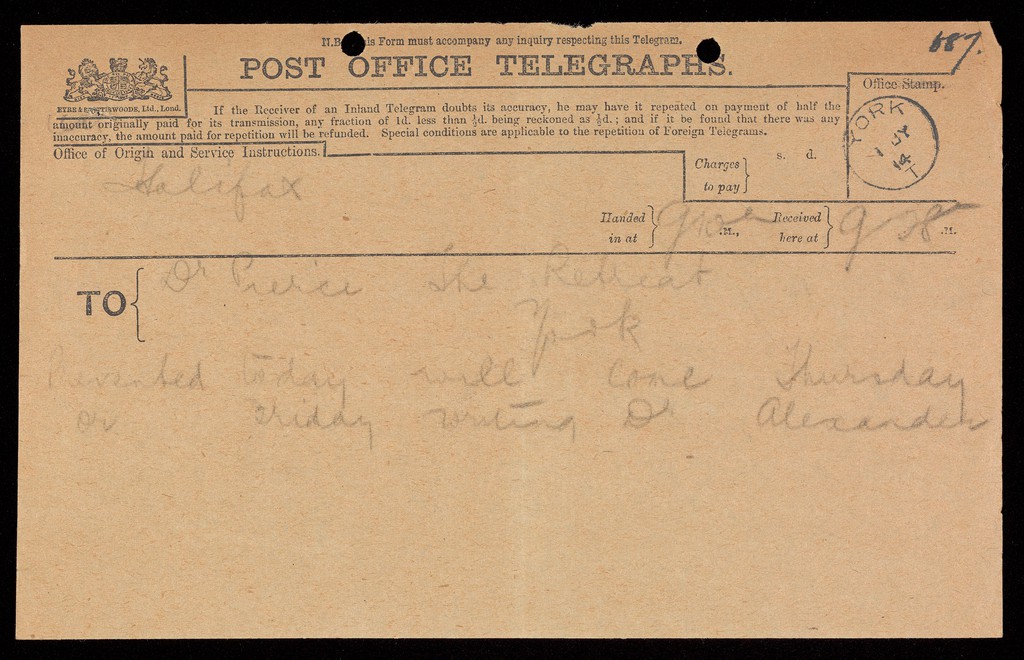 887.
N.B. This Form must accompany any inquiry respecting this Telegram.
POST OFFICE TELEGRAPHS.
EYRE & SPOTTISWOODE, Ltd., Lond.
If the Receiver of an Inland Telegram doubts its accuracy, he may have it repeated on payment of half the
amount originally paid for its transmission, any fraction of 1d. less than ½d. being reckoned as ½d.; and if it be found that there was any
inaccuracy, the amount paid for repetition will be refunded. Special conditions are applicable to the repetition of Foreign Telegrams.
Office of Origin and Service Instructions.
Office Stamp.
YORK
1 JY
14
T
Charges
to pay
s. d.
Halifax
Handed
in at
.M.,
Received
here at
9 38
.M.
TO
Dr Pierce The Retreat
York
Prevented today will come Thursday
or Friday writing Dr Alexander